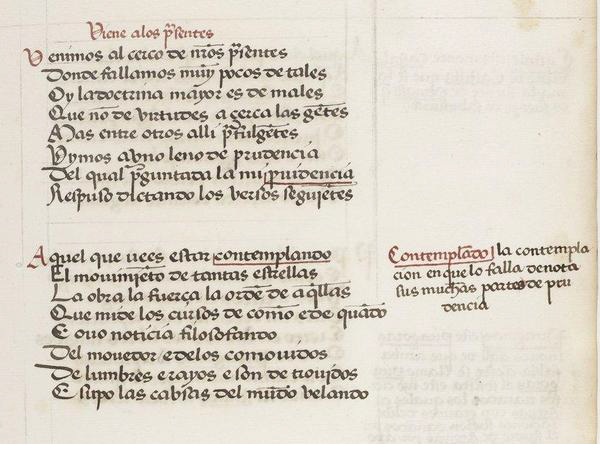 Viene alos p̃sentes
Venimos al cerco de nr̃os p̃sentes
Donde fallamos muy pocos de tales
Oy la doctrina mayor es de males
Que nõ de virtudes açerca las gẽtes
Mas entre otros alli p̃fulgẽtes
Vymos avno leno de prudençia
Del qual p̃guntada la mi puidençia
Respuso dictando los versos seguiẽtes
Aquel que uees estar contemplando
El mouimiẽto de tantas estrellas
La obra la fuerça la ordẽ de aq̃llas
Que mide los cursos de comõ e de quãdo
E ouo notiçia filosofando
Del mouedor e delos comouidos
De lumbres e rayos e son de tronidos
E supo las cabsas del mũdo velando
Contemplãdo la contempla
çion en que lo falla denota
sus muchas partes de pru
dençia